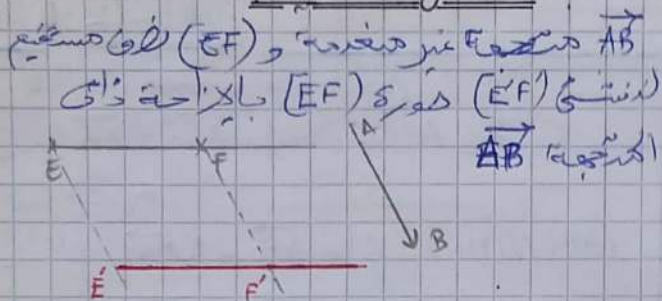 $\overrightarrow{AB}$ متجهة غير منعدمة و (EF) مستقيم
لننشئ (E'F') صورة (EF) بالإزاحة ذات
المتجهة $\overrightarrow{AB}$
E F A
B
E' F'